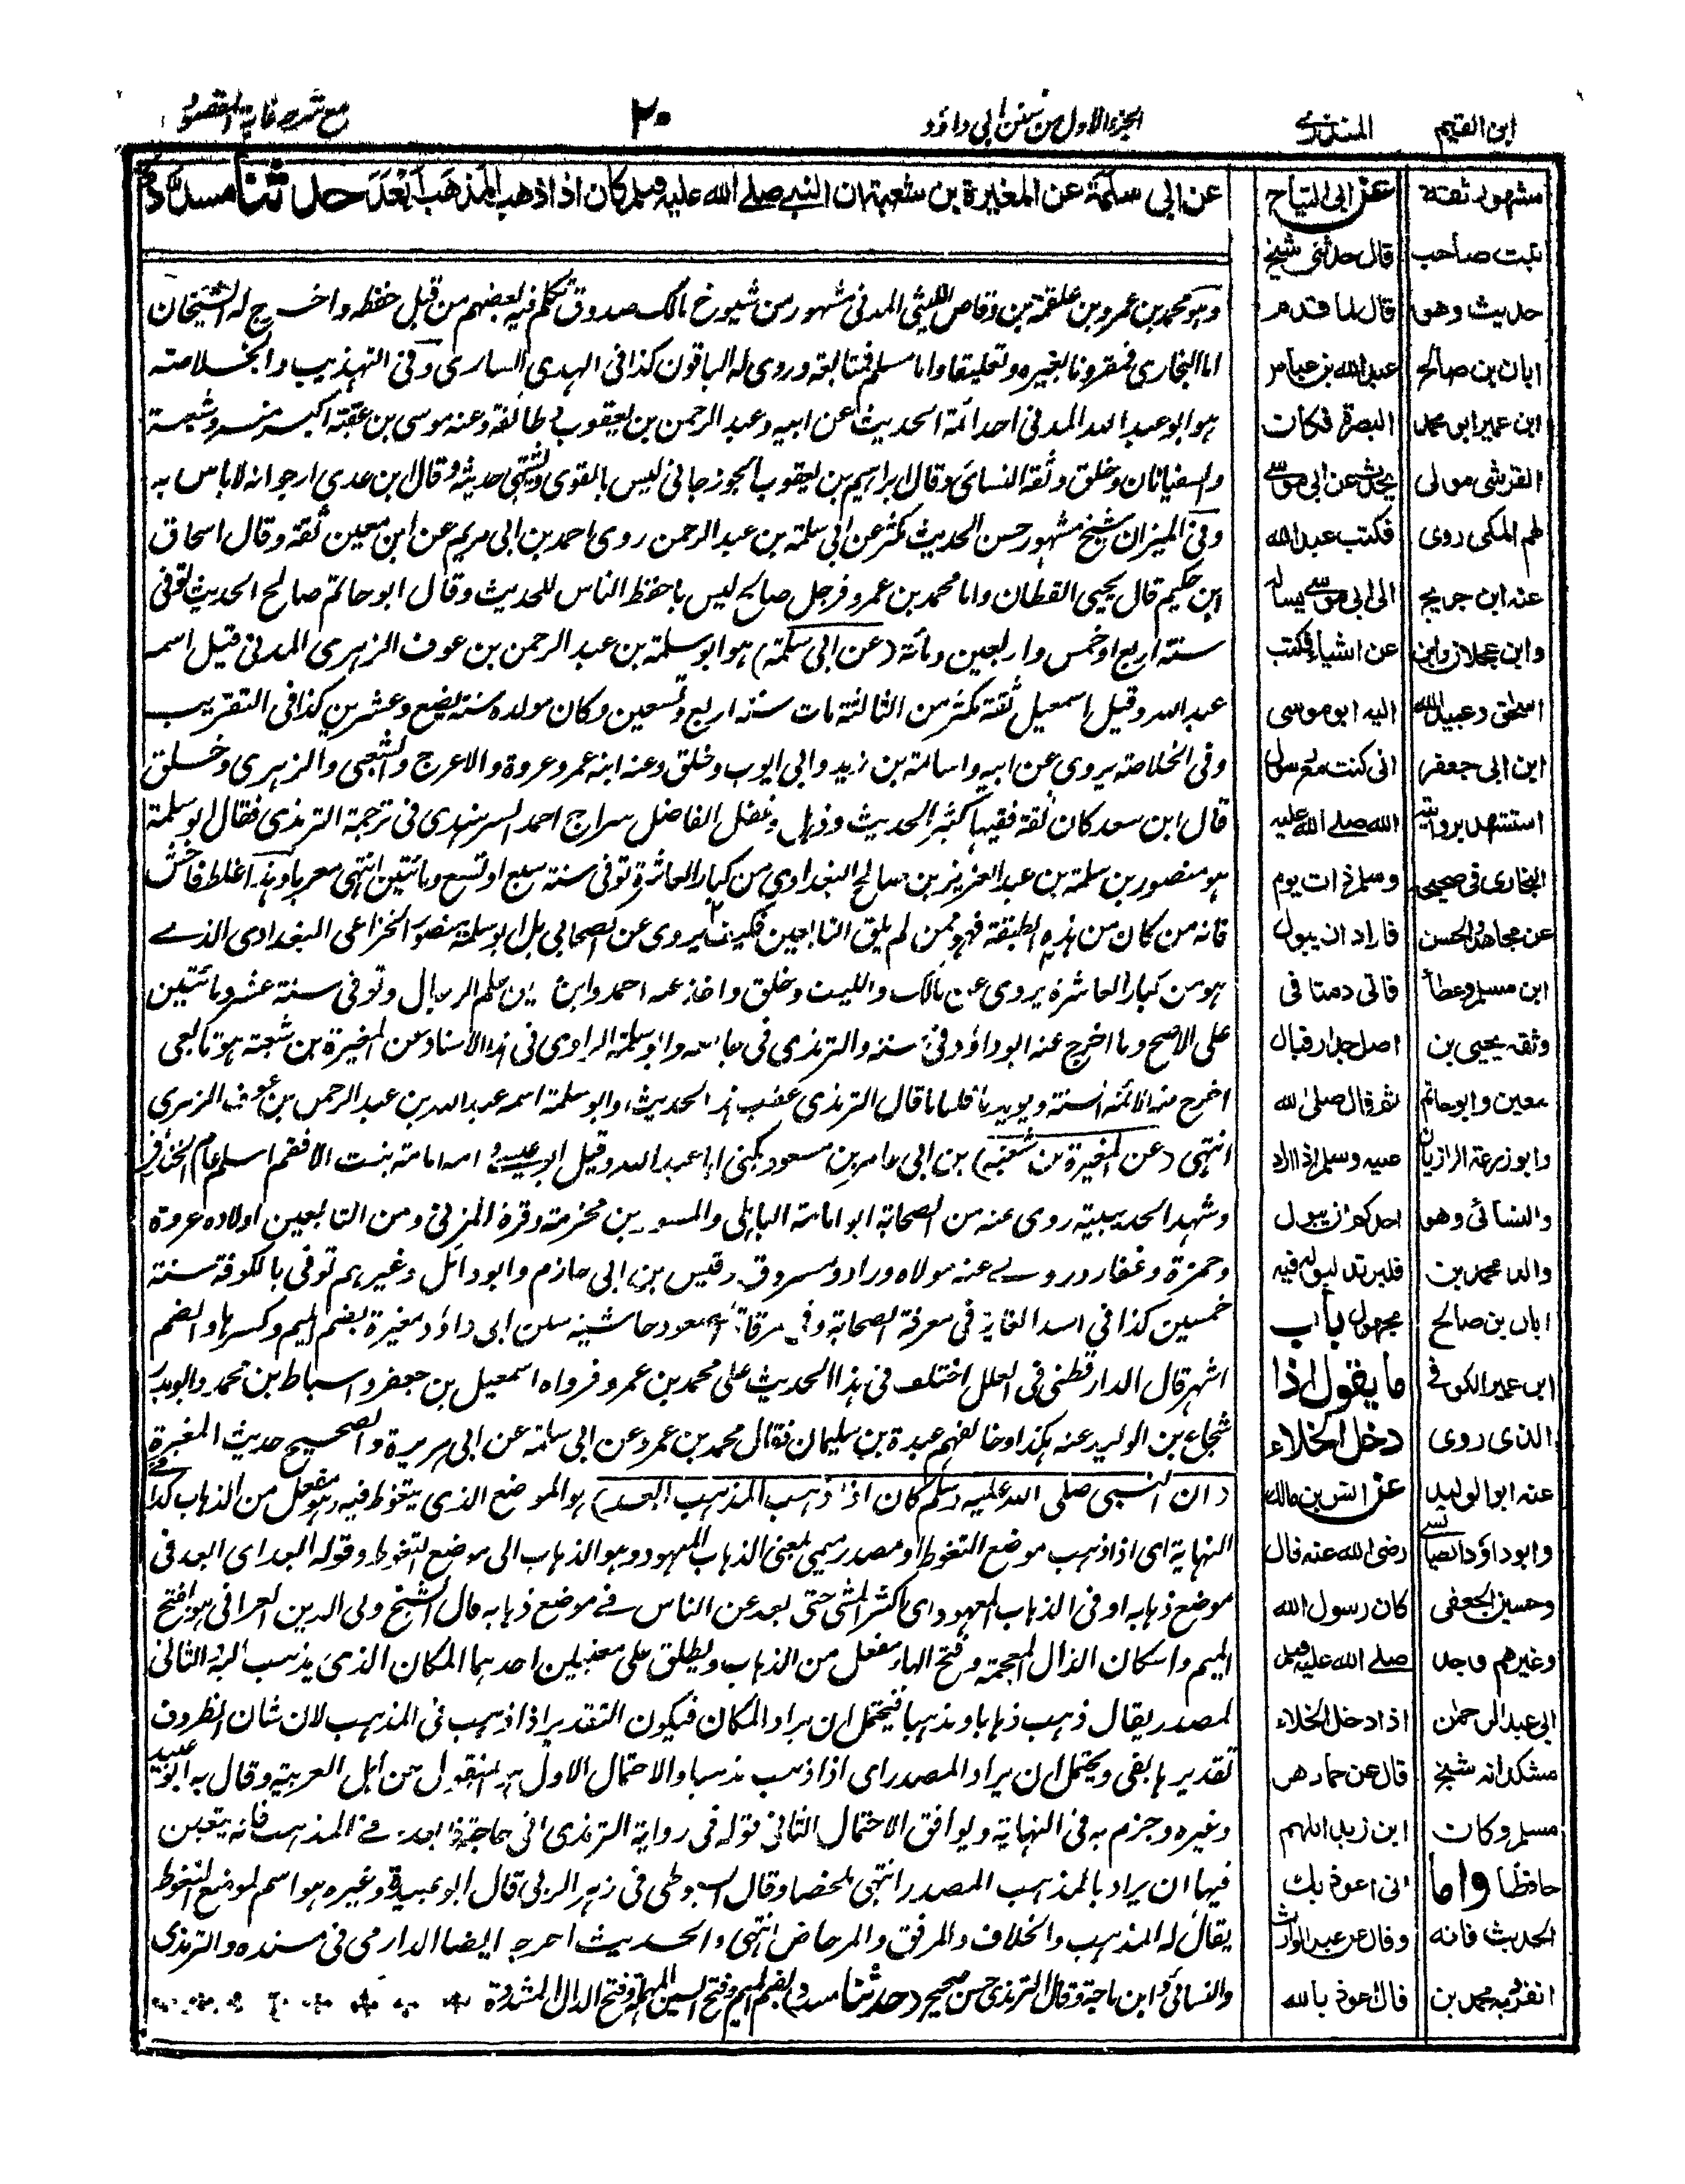 ابن القيم
المنذري
الجزء الاول من سنن ابي داؤد
٢٠
مع شرحه غاية المقصود
عن ابي سلمة عن المغيرة بن شعبة ان النبي صلى الله عليه وسلم كان اذا ذهب المذهب ابعد حدثنا مسدد
وهو محمد بن عمرو بن علقمة بن وقاص الليثي المدني مشهور من شيوخ مالك صدوق تكلم فيه بعضهم من قبل حفظه واخرج له الشيخان
اما البخاري فمقرونا بغيره وتعليقا واما مسلم فمتابعة وروى له الباقون كذا في الهدى الساري وفي التهذيب والخلاصة
هو ابو عبد الله المدني احد ائمة الحديث عن ابيه وعبد الرحمن بن يعقوب وطائفة وعنه موسى بن عقبة اكبر منه وشعبة
والسفيانان وخلق وثقه النسائي وقال ابراهيم بن يعقوب الجوزجاني ليس بالقوى ويشتهى حديثه وقال ابن عدي ارجو انه لا باس به
وفي الميزان شيخ مشهور حسن الحديث مكثر عن ابي سلمة بن عبد الرحمن روى احمد بن ابي مريم عن ابن معين ثقة وقال اسحاق
ابن حكيم قال يحيى القطان واما محمد بن عمرو فرجل صالح ليس باحفظ الناس للحديث وقال ابو حاتم صالح الحديث توفي
سنة اربع او خمس واربعين ومائة (عن ابي سلمة) هو ابو سلمة بن عبد الرحمن بن عوف الزهري المدني قيل اسمه
عبد الله وقيل اسمعيل ثقة مكثر من الثالثة مات سنة اربع وتسعين وكان مولده سنة بضع وعشرين كذا في التقريب
وفي الخلاصة يروى عن ابيه واسامة بن زيد وابي ايوب وخلق وعنه ابنه عمر وعروة والاعرج والشعبي والزهري وخلق
قال ابن سعد كان ثقة فقيها كثير الحديث وذهل وغفل الفاضل سراج احمد السرهندي في ترجمة الترمذي فقال ابو سلمة
هو منصور بن سلمة بن عبد العزيز بن صالح البغدادي من كبار العاشرة توفي سنة سبع او تسع ومائتين انتهى معربا وهذا غلط فاحش
فانه من كان من هذه الطبقة فهو ممن لم يلق التابعين فكيف يروى عن الصحابي بل ابو سلمة منصور الخزاعي البغدادي الذي
هو من كبار العاشرة يروى عن مالك والليث وخلق واخذ عنه احمد وابن معين علم الرجال وتوفي سنة عشر ومائتين
على الاصح وما اخرج عنه ابو داؤد في سننه والترمذي في جامعه وابو سلمة الراوي في هذا الاسناد عن المغيرة بن شعبة هو تابعي
اخرج عنه الائمة الستة ويؤيد ما قلنا ما قال الترمذي عقب هذا الحديث وابو سلمة اسمه عبد الله بن عبد الرحمن بن عوف الزهري
انتهى (عن المغيرة بن شعبة) بن ابي عامر بن مسعود يكنى ابا عبد الله وقيل ابو عيسى امه امامة بنت الافقم اسلم عام الخندق
وشهد الحديبية روى عنه من الصحابة ابو امامة الباهلي والمسور بن مخرمة وقرة المزني ومن التابعين اولاده عروة
وحمزة وغفار وروى عنه مولاه وراد ومسروق وقيس بن ابي حازم وابو وائل وغيرهم توفي بالكوفة سنة
خمسين كذا في اسد الغابة في معرفة الصحابة وفي مرقاة الصعود حاشية سنن ابي داؤد مغيرة بضم الميم وكسرها والضم
اشهر قال الدارقطني في العلل اختلف في هذا الحديث على محمد بن عمرو فرواه اسمعيل بن جعفر واسباط بن محمد وابو بدر
شجاع بن الوليد عنه هكذا وخالفهم عبدة بن سليمان فقال محمد بن عمرو عن ابي سلمة عن ابي هريرة والصحيح حديث المغيرة
(ان النبي صلى الله عليه وسلم كان اذا ذهب المذهب ابعد) هو الموضع الذي يتغوط فيه وهو مفعل من الذهاب كذا في
النهاية اي اذا ذهب موضع التغوط او مصدر ميمي بمعنى الذهاب المعهود وهو الذهاب الى موضع التغوط وقوله ابعد اي ابعد في
موضع ذهابه او في الذهاب المعهود اي اكثر المشي حتى بعد عن الناس في موضع ذهابه قال الشيخ ولي الدين العراقي هو بفتح
الميم واسكان الذال المعجمة وفتح الهاء مفعل من الذهاب ويطلق على معنيين احدهما المكان الذي يذهب اليه الثاني
لمصدر يقال ذهب ذهابا ومذهبا فيحتمل ان يراد المكان فيكون التقدير اذا ذهب في المذهب لان شان الظروف
تقديرها بفي ويحتمل ان يراد المصدر اي اذا ذهب مذهبا والاحتمال الاول هو المنقول عن اهل العربية وقال به ابو عبيد
وغيره وجزم به في النهاية ويوافق الاحتمال الثاني قوله في رواية الترمذي اتى حاجته فابعد في المذهب فانه يتعين
فيها ان يراد بالمذهب المصدر انتهى ملخصا وقال السيوطي في زهر الربى قال ابو عبيدة وغيره هو اسم لموضع التغوط
يقال له المذهب والخلاف والمرفق والمرحاض انتهى والحديث اخرجه ايضا الدارمي في مسنده والترمذي
والنسائي وابن ماجة وقال الترمذي حسن صحيح (حدثنا مسدد) بضم الميم وفتح السين المهملة وفتح الدال المشددة
عن ابي التياح
قال حدثني شيخ
قال لما قدم
عبد الله بن عباس
البصرة فكان
يحدث عن ابي موسى
فكتب عبد الله
الى ابي موسى يساله
عن اشياء فكتب
اليه ابو موسى
اني كنت مع رسول
الله صلى الله عليه
وسلم ذات يوم
فاراد ان يبول
فاتى دمثا في
اصل جدار فبال
ثم قال صلى الله
عليه وسلم اذا اراد
احدكم ان يبول
فليرتد لبوله فيه
مجهول باب
ما يقول اذا
دخل الخلاء
عن انس بن مالك
رضى الله عنه قال
كان رسول الله
صلى الله عليه وسلم
اذا دخل الخلاء
قال عن حماد هو
ابن زيد اللهم
اني اعوذ بك
وقال عن عبد الوارث
قال اعوذ بالله
مشهور ثقة
ثبت صاحب
حديث وهو
ابان بن صالح
ابن عمير ابو محمد
القرشي مولى
لهم المكي روى
عنه ابن جريج
وابن عجلان وابن
اسحق وعبيد الله
ابن ابي جعفر
استشهد بروايته
البخاري في صحيحه
عن مجاهد والحسن
ابن مسلم وعطاء
وثقه يحيى بن
معين وابو حاتم
وابو زرعة الرازيان
والنسائي وهو
والد محمد بن
ابان بن صالح
ابن عمير الكوفي
الذي روى
عنه ابو الوليد
وابو داؤد الطيالسي
وحسين الجعفي
وغيرهم وجد
ابي عبد الرحمن
مشكدانه شيخ
مسلم وكان
حافظا واما
الحديث فانه
انفرد به محمد بن